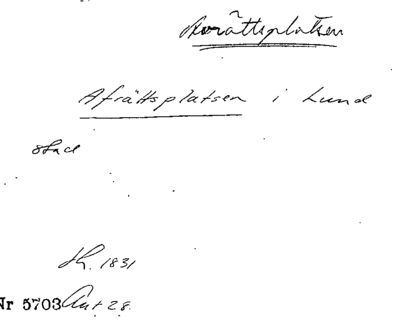 Avrättsplatsen
Afrättsplatsen i Lund
stad
1831
Nr 5703 28.